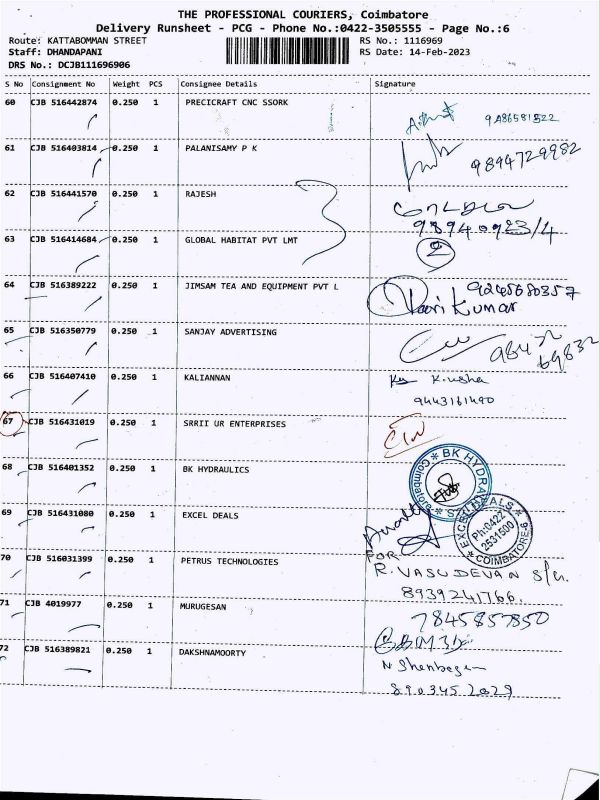 THE PROFESSIONAL COURIERS, Coimbatore
Delivery Runsheet - PCG - Phone No.:0422-3505555 - Page No.:6
Route: KATTABOMMAN STREET RS No.: 1116969
Staff: DHANDAPANI RS Date: 14-Feb-2023
DRS No.: DCJB111696906
S No Consignment No Weight PCS Consignee Details Signature
60 CJB 516442874 0.250 1 PRECICRAFT CNC SSORK
9486581522
61 CJB 516403814 0.250 1 PALANISAMY P K
9894729982
62 CJB 516441570 0.250 1 RAJESH
9894092314
63 CJB 516414684 0.250 1 GLOBAL HABITAT PVT LMT
2
64 CJB 516389222 0.250 1 JIMSAM TEA AND EQUIPMENT PVT L
Kumar
65 CJB 516350779 0.250 1 SANJAY ADVERTISING
98432
69832
66 CJB 516407410 0.250 1 KALIANNAN
9443161490
67 CJB 516431019 0.250 1 SRRII UR ENTERPRISES
68 CJB 516401352 0.250 1 BK HYDRAULICS
BK HYDRA
Coimbatore
69 CJB 516431080 0.250 1 EXCEL DEALS
EXCEL DEALS
Ph:0422
2531500
COIMBATORE-6
FOR
70 CJB 516031399 0.250 1 PETRUS TECHNOLOGIES
R. VASUDEVAN
8939241766.
71 CJB 4019977 0.250 1 MURUGESAN
7845857850
72 CJB 516389821 0.250 1 DAKSHNAMOORTY
8903452029